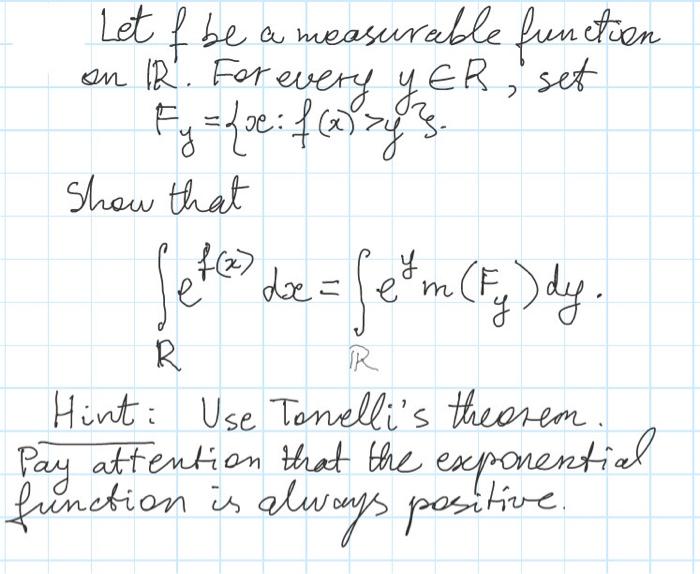 Let f be a measurable function
on ℝ. For every y ∈ R, set
F_y = {x: f(x) > y}.
Show that
∫_R e^{f(x)} dx = ∫_ℝ e^y m(F_y) dy.
Hint: Use Tonelli's theorem.
Pay attention that the exponential
function is always positive.